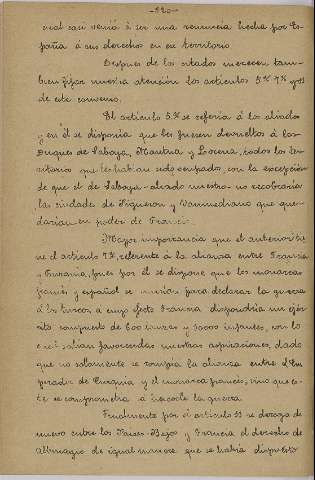 -120-
cual casi venia á ser una renuncia hecha por Es-
paña á sus derechos en ese territorio
Despues de los citados merecen tam-
bien fijar nuestra atención los articulos 5.º 7.º y 11
de este convenio.
El articulo 5.º se referia á los aliados
y en él se disponia que les fuesen devueltos á los
Duques de Saboya, Mantua y Lorena, todos los te-
rritorios que les habian sido ocupados, con la excepción
de que el de Saboya - aliado nuestro - no recobraria
las ciudades de y que que-
darian en poder de Francia.
Mayor importancia que el anterior tie-
ne el articulo 7.º, referente á la alianza entre Francia
y Turquia, pues por él se dispone que los monarcas
francés y español se unirian para declarar la guerra
á los turcos, á cuyo efecto Francia dispondria un ejér-
cito compuesto de 600 lanzas y infantes, con lo
cual salian favorecidas nuestras aspiraciones, dado
que no solamente se rompia la alianza entre el Em-
perador de Turquia y el monarca francés, sino que es-
te se comprometia á hacerle la guerra.
Finalmente por el articulo 11 se deroga de
nuevo entre los Paises-Bajos y Francia el derecho de
albinagio de igual manera que se habia dispuesto